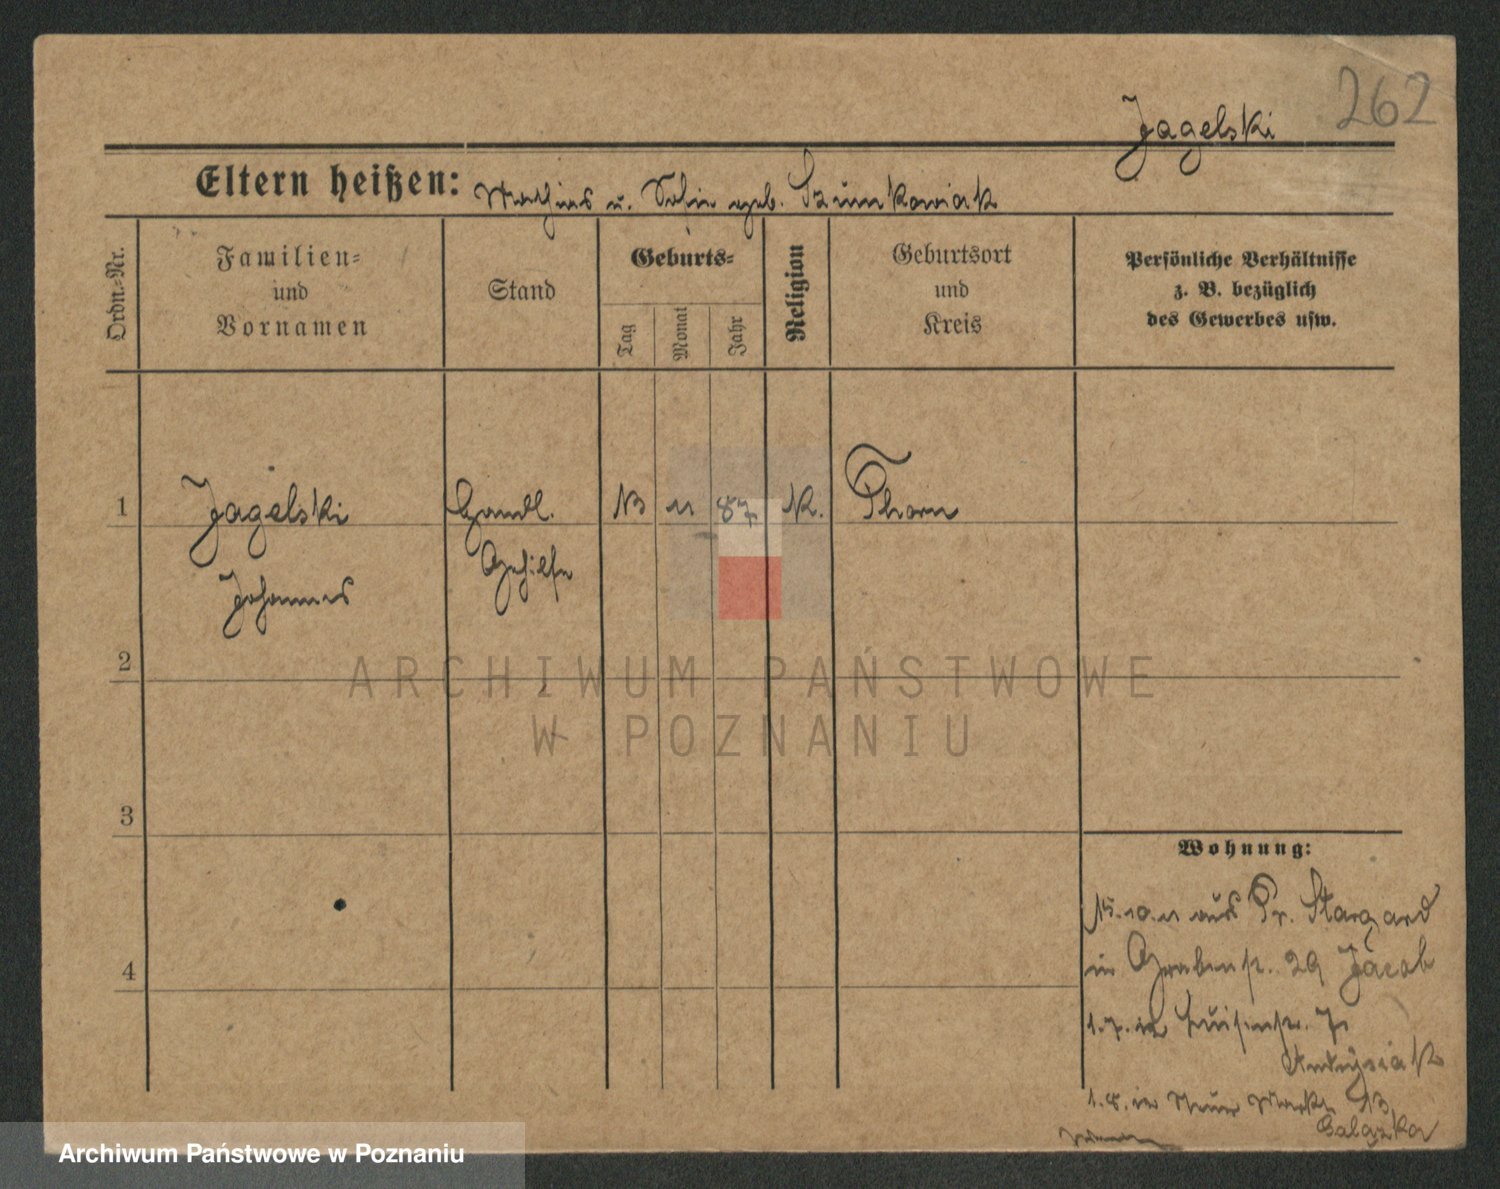 262
Jagelski
Eltern heißen: Mathias u. Sofie geb. Szumkowiak
Ordn.-Nr.
Familien-
und
Vornamen
Stand
Geburts-
Tag
Monat
Jahr
Religion
Geburtsort
und
Kreis
Persönliche Verhältnisse
z. B. bezüglich
des Gewerbes usw.
1 Jagelski Handl. 13 11 87 K. Thorn
Johannes Gehilfe
2
3
4
Wohnung:
15.10.11 aus Pr. Stargard
in Grabenst. 29 Jacob
1.7. in Luisenstr. 7
Andrysiak
1.8. in Neue Markt 13
Galązka
ARCHIWUM PAŃSTWOWE
W POZNANIU
Archiwum Państwowe w Poznaniu